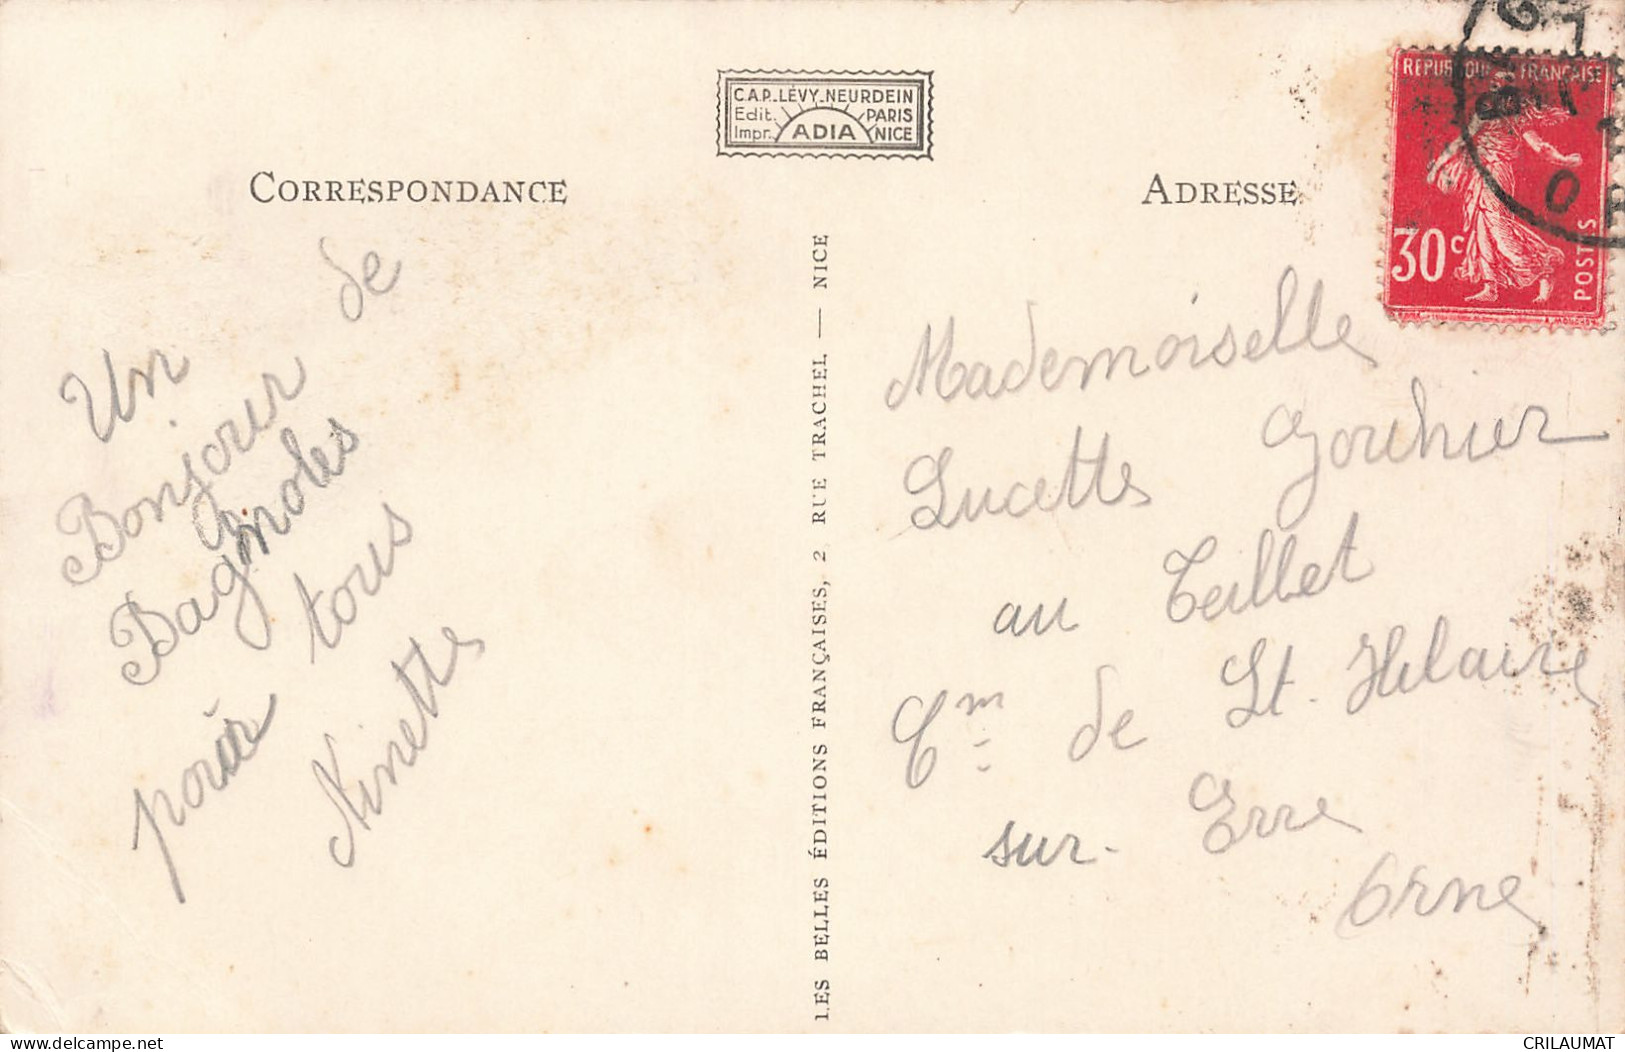 C.A.P. LÉVY-NEURDEIN
Edit. PARIS
Impr. ADIA NICE
CORRESPONDANCE
ADRESSE
REPUBLIQUE FRANÇAISE
30c
POSTES
Un
Bonjour de
Bagnoles
pour tous
Ninette
LES BELLES ÉDITIONS FRANÇAISES, 2 RUE TRACHEL — NICE
Mademoiselle
Lucette Gouhier
au Teillet
Cm de St. Hilaire
sur Erre
Orne
www.delcampe.net
CRILAUMAT